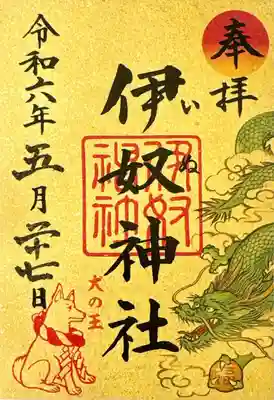 奉拝
伊奴神社
いぬ
伊奴神社
犬の王
令和六年五月二十七日